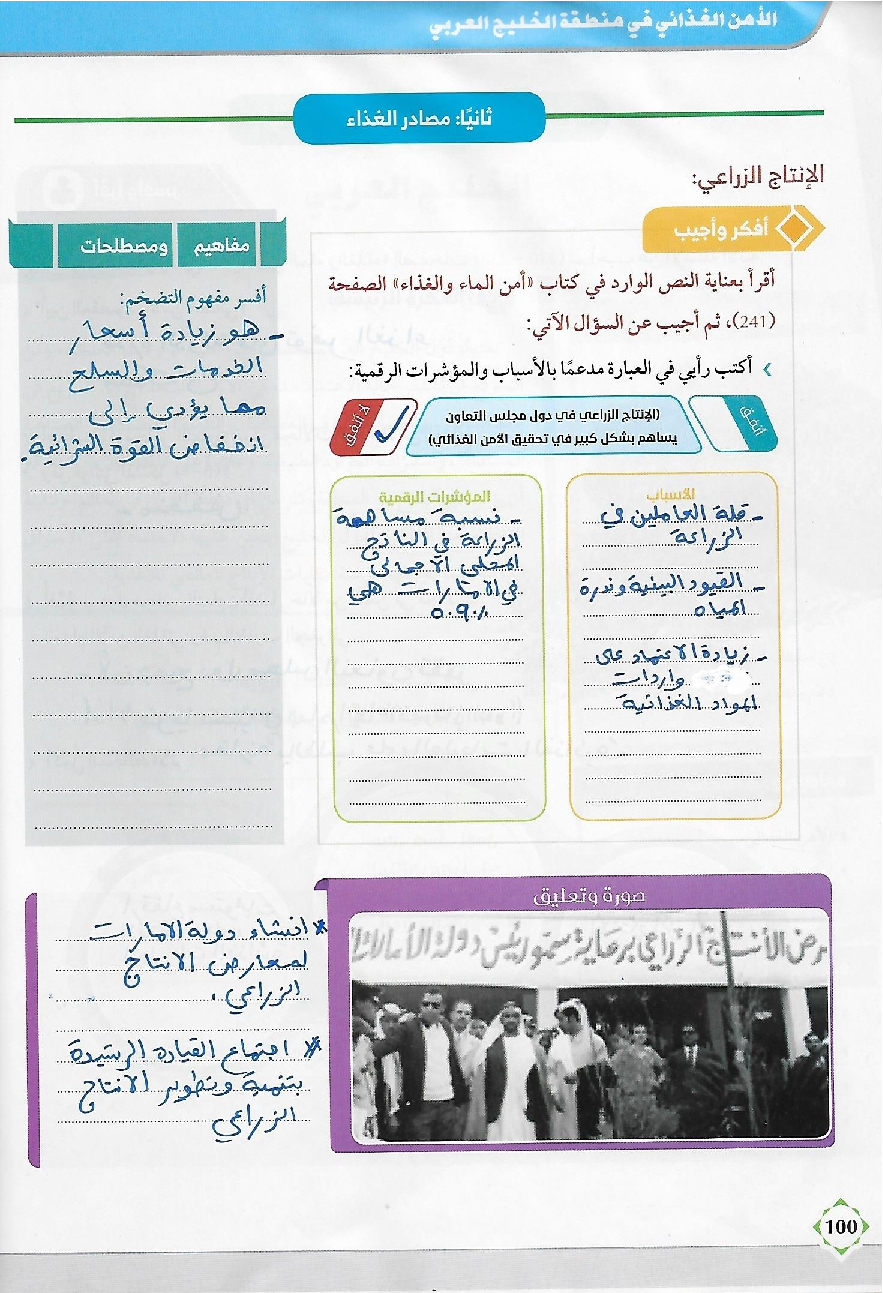 الأمن الغذائي في منطقة الخليج العربي
ثانيًا: مصادر الغذاء
الإنتاج الزراعي:
أفكر وأجيب
أقرأ بعناية النص الوارد في كتاب «أمن الماء والغذاء» الصفحة
(241)، ثم أجيب عن السؤال الآتي:
أكتب رأيي في العبارة مدعمًا بالأسباب والمؤشرات الرقمية:
أتفق
(الإنتاج الزراعي في دول مجلس التعاون
يساهم بشكل كبير في تحقيق الأمن الغذائي)
لا أتفق
الأسباب
- قلة العاملين في
الزراعة
- القيود البيئية وندرة
المياه
- زيادة الاعتماد على
واردات
المواد الغذائية
المؤشرات الرقمية
- نسبة مساهمة
الزراعة في الناتج
المحلي الاجمالي
في الامارات هي
٠.٩٠٪
مفاهيم ومصطلحات
أفسر مفهوم التضخم:
- هو زيادة أسعار
الخدمات والسلع
مما يؤدي إلى
انخفاض القوة الشرائية.
صورة وتعليق
رض الأنتاج الزراعي برعاية سمو رئيس دولة الأمارات
* انشاء دولة الامارات
لمعارض الانتاج
الزراعي.
* اهتمام القيادة الرشيدة
بتنمية وتطوير الانتاج
الزراعي
100